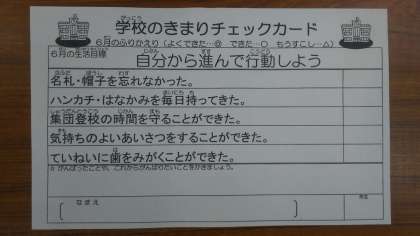 学校のきまりチェックカード
6月のふりかえり(よくできた…◎ できた…○ もうすこし…△)
6月の生活目標
自分から進んで行動しよう
名札・帽子を忘れなかった。
ハンカチ・はなかみを毎日持ってきた。
集団登校の時間を守ることができた。
気持ちのよいあいさつをすることができた。
ていねいに歯をみがくことができた。
がんばったことや、これからがんばりたいことをかきましょう。
なまえ